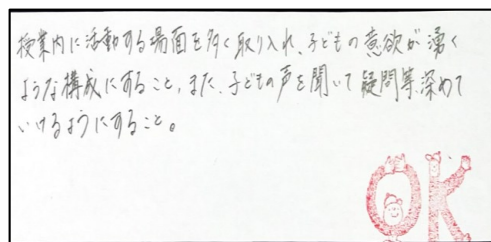 授業内に活動する場面を多く取り入れ、子どもの意欲が湧く
ような構成にすること、また、子どもの声を聞いて疑問等深めて
いけるようにすること。
OK